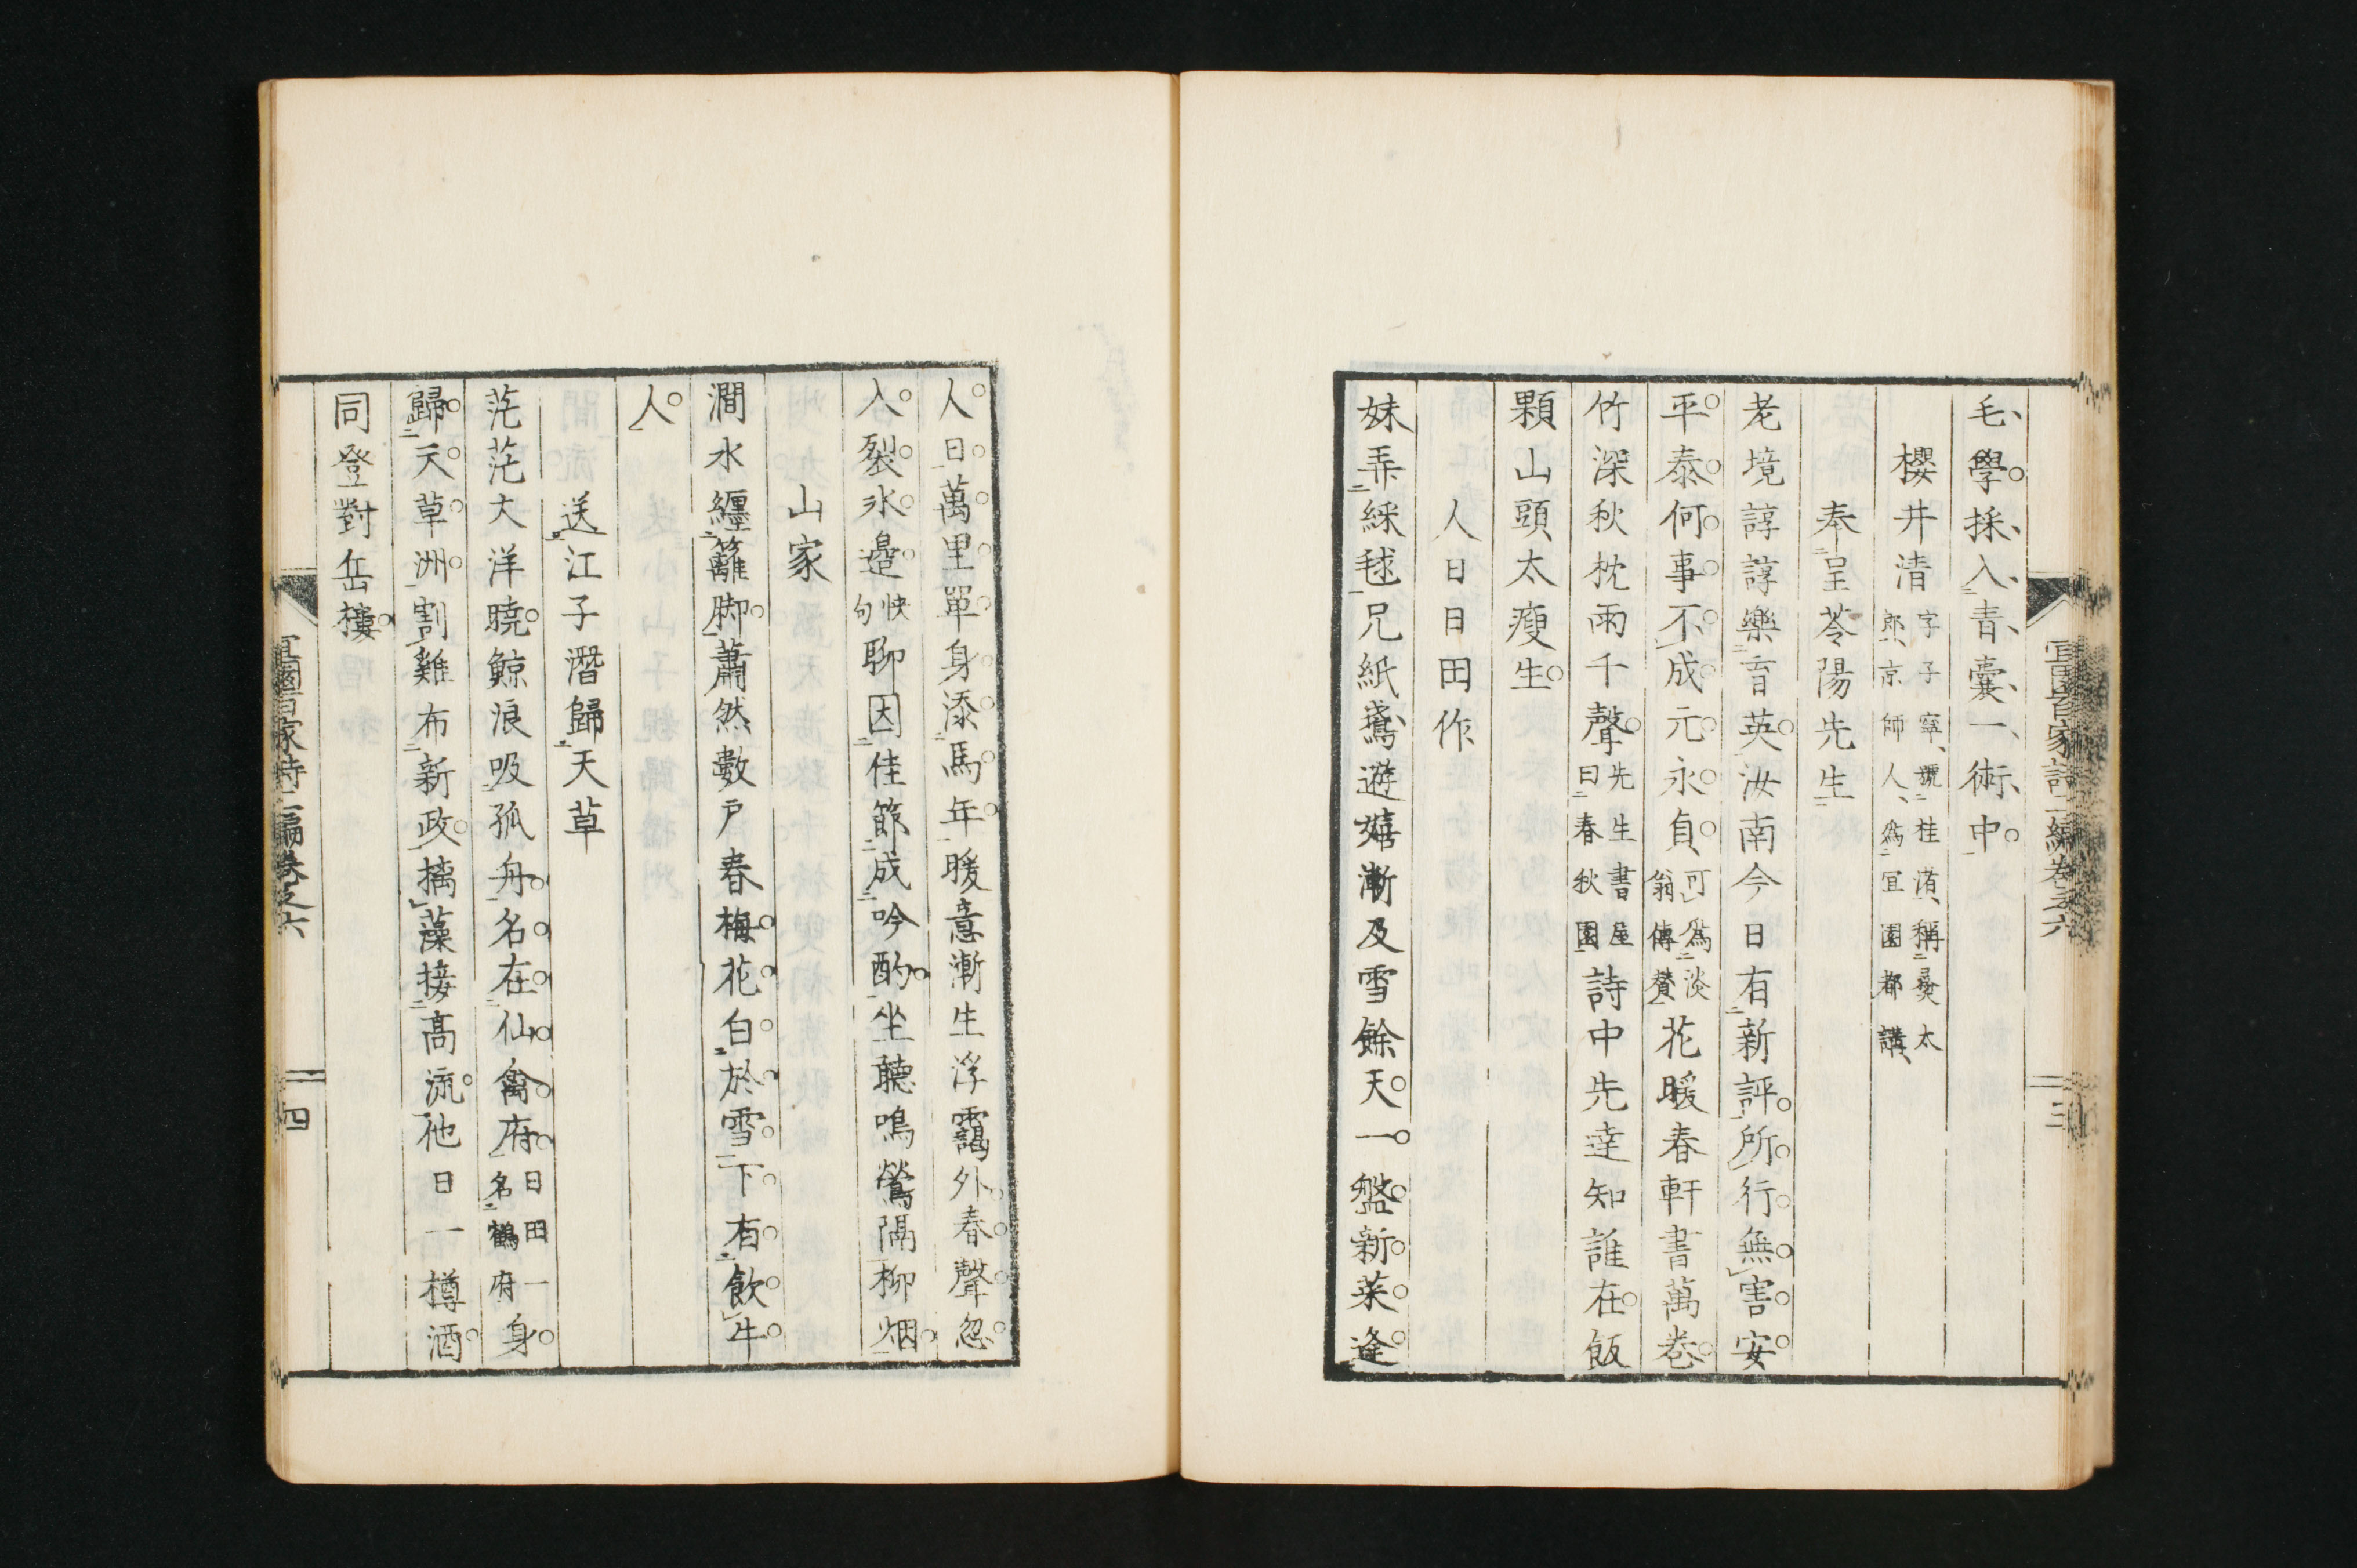 毛學採入青囊一術中
櫻井清 字子寧、號桂渚、稱彜太郎、京師人、爲宜園都講、
奉呈苓陽先生
老境諄諄樂育英汝南今日有新評所行無害安
平泰何事不成元永貞 可爲淡翁傳賛 花暖春軒書萬卷
竹深秋枕雨千聲 先生書屋曰春秋園 詩中先達知誰在飯
顆山頭太瘦生
人日日田作
妹弄綵毬兄紙鳶遊嬉漸及雪餘天一盤新菜逢
宜園百家詩二編卷之六 三
人日萬里單身添馬年暖意漸生浮靄外春聲忽
入裂氷邉 快句 聊因佳節成吟酌坐聽鳴鶯隔柳烟
山家
澗水纏籬脚蕭然數戸春梅花白於雪下有飲牛
人
送江子潛歸天草
茫茫大洋曉鯨浪吸孤舟名在仙禽府 日田一名鶴府 身
歸天草洲割雞布新政摛藻接高流他日一樽酒
同登對岳樓
宜園百家詩二編卷之六 四